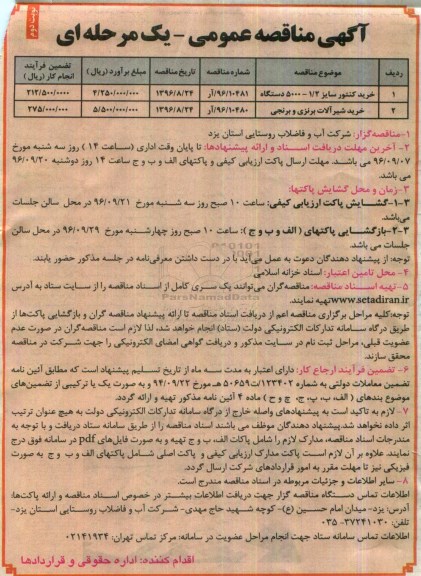 نوبت دوم
آگهی مناقصه عمومی - یک مرحله ای
ردیف
موضوع مناقصه
شماره مناقصه
تاریخ مناقصه
مبلغ برآورد (ریال)
تضمین فرآیند انجام کار (ریال)
۱
خرید کنتور سایز ۱/۲ – ۵۰۰۰ دستگاه
۹۶/۱۰۴۸۱/آر
۱۳۹۶/۸/۲۴
۴/۲۵۰/۰۰۰/۰۰۰
۲۱۲/۵۰۰/۰۰۰۰
۲
خرید شیرآلات برنزی و برنجی
۹۶/۱۰۴۸۰/آر
۱۳۹۶/۸/۲۴
۵/۵۰۰/۰۰۰/۰۰۰
۲۷۵/۰۰۰/۰۰۰
۱-مناقصه‌گزار: شرکت آب و فاضلاب روستایی استان یزد
۲- آخرین مهلت دریافت اسناد و ارائه پیشنهادها: تا پایان وقت اداری (ساعت ۱۴ ) روز سه شنبه مورخ
۹۶/۰۹/۰۷ می باشد. مهلت ارسال پاکت ارزیابی کیفی و پاکتهای الف و ب و ج ساعت ۱۴ روز دوشنبه ۹۶/۰۹/۲۰
می باشد.
۳-زمان و محل گشایش پاکتها:
۳-۱-گشایش پاکت ارزیابی کیفی: ساعت ۱۰ صبح روز سه شنبه مورخ ۹۶/۰۹/۲۱ در محل سالن جلسات
می‌باشد.
۳-۲-بازگشایی پاکتهای ( الف و ب و ج ): ساعت ۱۰ صبح روز چهارشنبه مورخ ۹۶/۰۹/۲۹ در محل سالن
جلسات می باشد.
توجه: از پیشنهاد دهندگان دعوت به عمل می‌آید با در دست داشتن معرفی‌نامه در جلسه مذکور حضور یابند.
۴- محل تامین اعتبار: اسناد خزانه اسلامی
۵-تهیه اسناد مناقصه: مناقصه‌گران می‌توانند یک سری کامل از اسناد مناقصه را از سایت ستاد به آدرس
www.setadiran.ir تهیه نمایند.
توجه:کلیه مراحل برگزاری مناقصه اعم از دریافت اسناد مناقصه تا ارائه پیشنهاد مناقصه گران و بازگشایی پاکت‌ها از
طریق درگاه سامانه تدارکات الکترونیکی دولت (ستاد) انجام خواهد شد، لذا لازم است مناقصه‌گران در صورت عدم
عضویت قبلی، مراحل ثبت نام در سایت مذکور و دریافت گواهی امضای الکترونیکی را جهت شرکت در مناقصه
محقق سازند.
۶- تضمین فرآیند ارجاع کار: دارای اعتبار به مدت سه ماه از تاریخ تسلیم پیشنهاد است که مطابق آئین نامه
تضمین معاملات دولتی به شماره ۱۲۳۴۰۲/ت۵۰۶۵۹ هـ مورخ ۹۴/۰۹/۲۲ و به صورت یک یا ترکیبی از تضمین‌های
موضوع بندهای ( الف، ب، پ، ج، چ و ح ) ماده ۴ آئین نامه مذکور تهیه و ارائه گردد.
۷- لازم به تاکید است به پیشنهادهای واصله خارج از درگاه سامانه تدارکات الکترونیکی دولت به هیچ عنوان ترتیب
اثر داده نخواهد شد.پیشنهاد دهندگان موظف می باشند اسناد مناقصه را از طریق سامانه ستاد دریافت و با توجه به
مندرجات اسناد مناقصه، مدارک لازم را شامل پاکات الف، ب و ج تهیه و به صورت فایل‌های pdf در سامانه فوق درج
نمایند. علاوه بر آن لازم است پاکت مدارک ارزیابی کیفی و پاکت اصلی شامل پاکتهای الف و ب و ج به صورت
فیزیکی نیز تا مهلت مقرر به امور قراردادهای شرکت ارسال گردد.
۸- سایر اطلاعات و جزئیات مربوطه در اسناد مناقصه مندرج است.
اطلاعات تماس دستگاه مناقصه گزار جهت دریافت اطلاعات بیشتر در خصوص اسناد مناقصه و ارائه پاکت‌ها:
آدرس: یزد- میدان امام حسین (ع)- کوچه شهید حاج مهدی- شرکت آب و فاضلاب روستایی استان یزد-
تلفن: ۳۷۲۴۱۰۳۰- ۰۳۵
اطلاعات تماس سامانه ستاد جهت انجام مراحل عضویت در سامانه: مرکز تماس تهران: ۰۲۱۴۱۹۳۴
اقدام کننده: اداره حقوقی و قراردادها